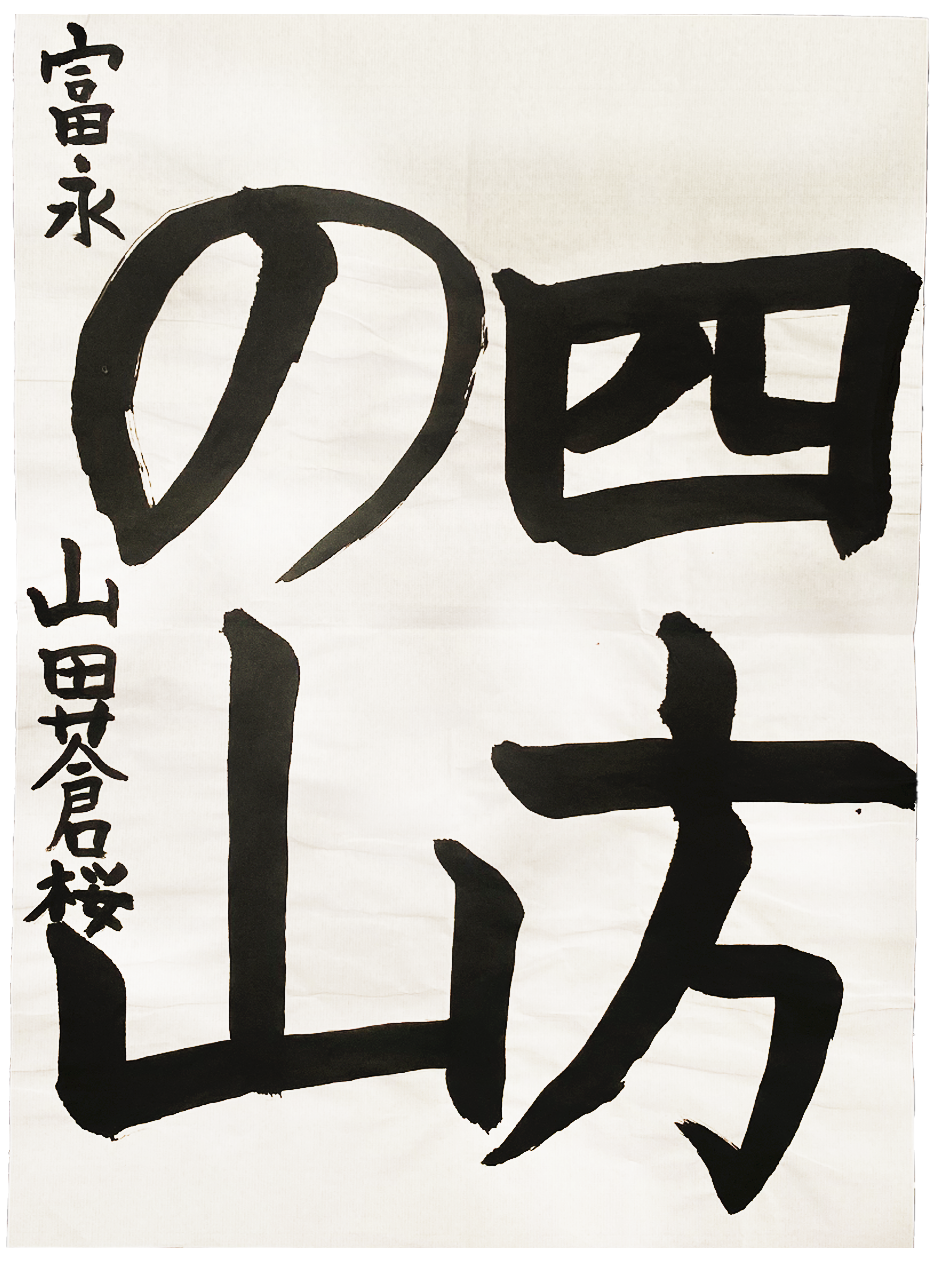 四方
の山
富永 山田蒼桜